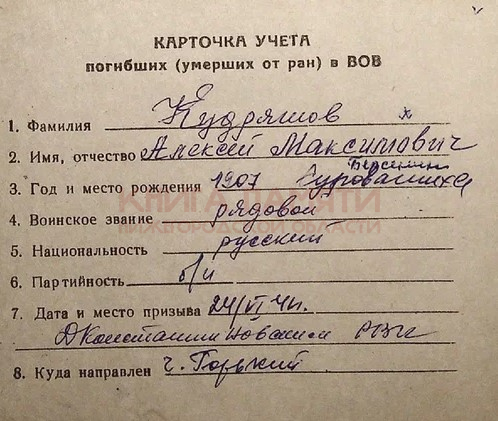 КАРТОЧКА УЧЕТА
погибших (умерших от ран) в ВОВ
1. Фамилия Кудряшов х
2. Имя, отчество Алексей Максимович
3. Год и место рождения 1907
КНИГА ПАМЯТИ
4. Воинское звание рядовой
НИЖЕГОРОДСКОЙ ОБЛАСТИ
5. Национальность русский
6. Партийность б/п
7. Дата и место призыва 24/VI 41г.
РВК
8. Куда направлен г. Горький